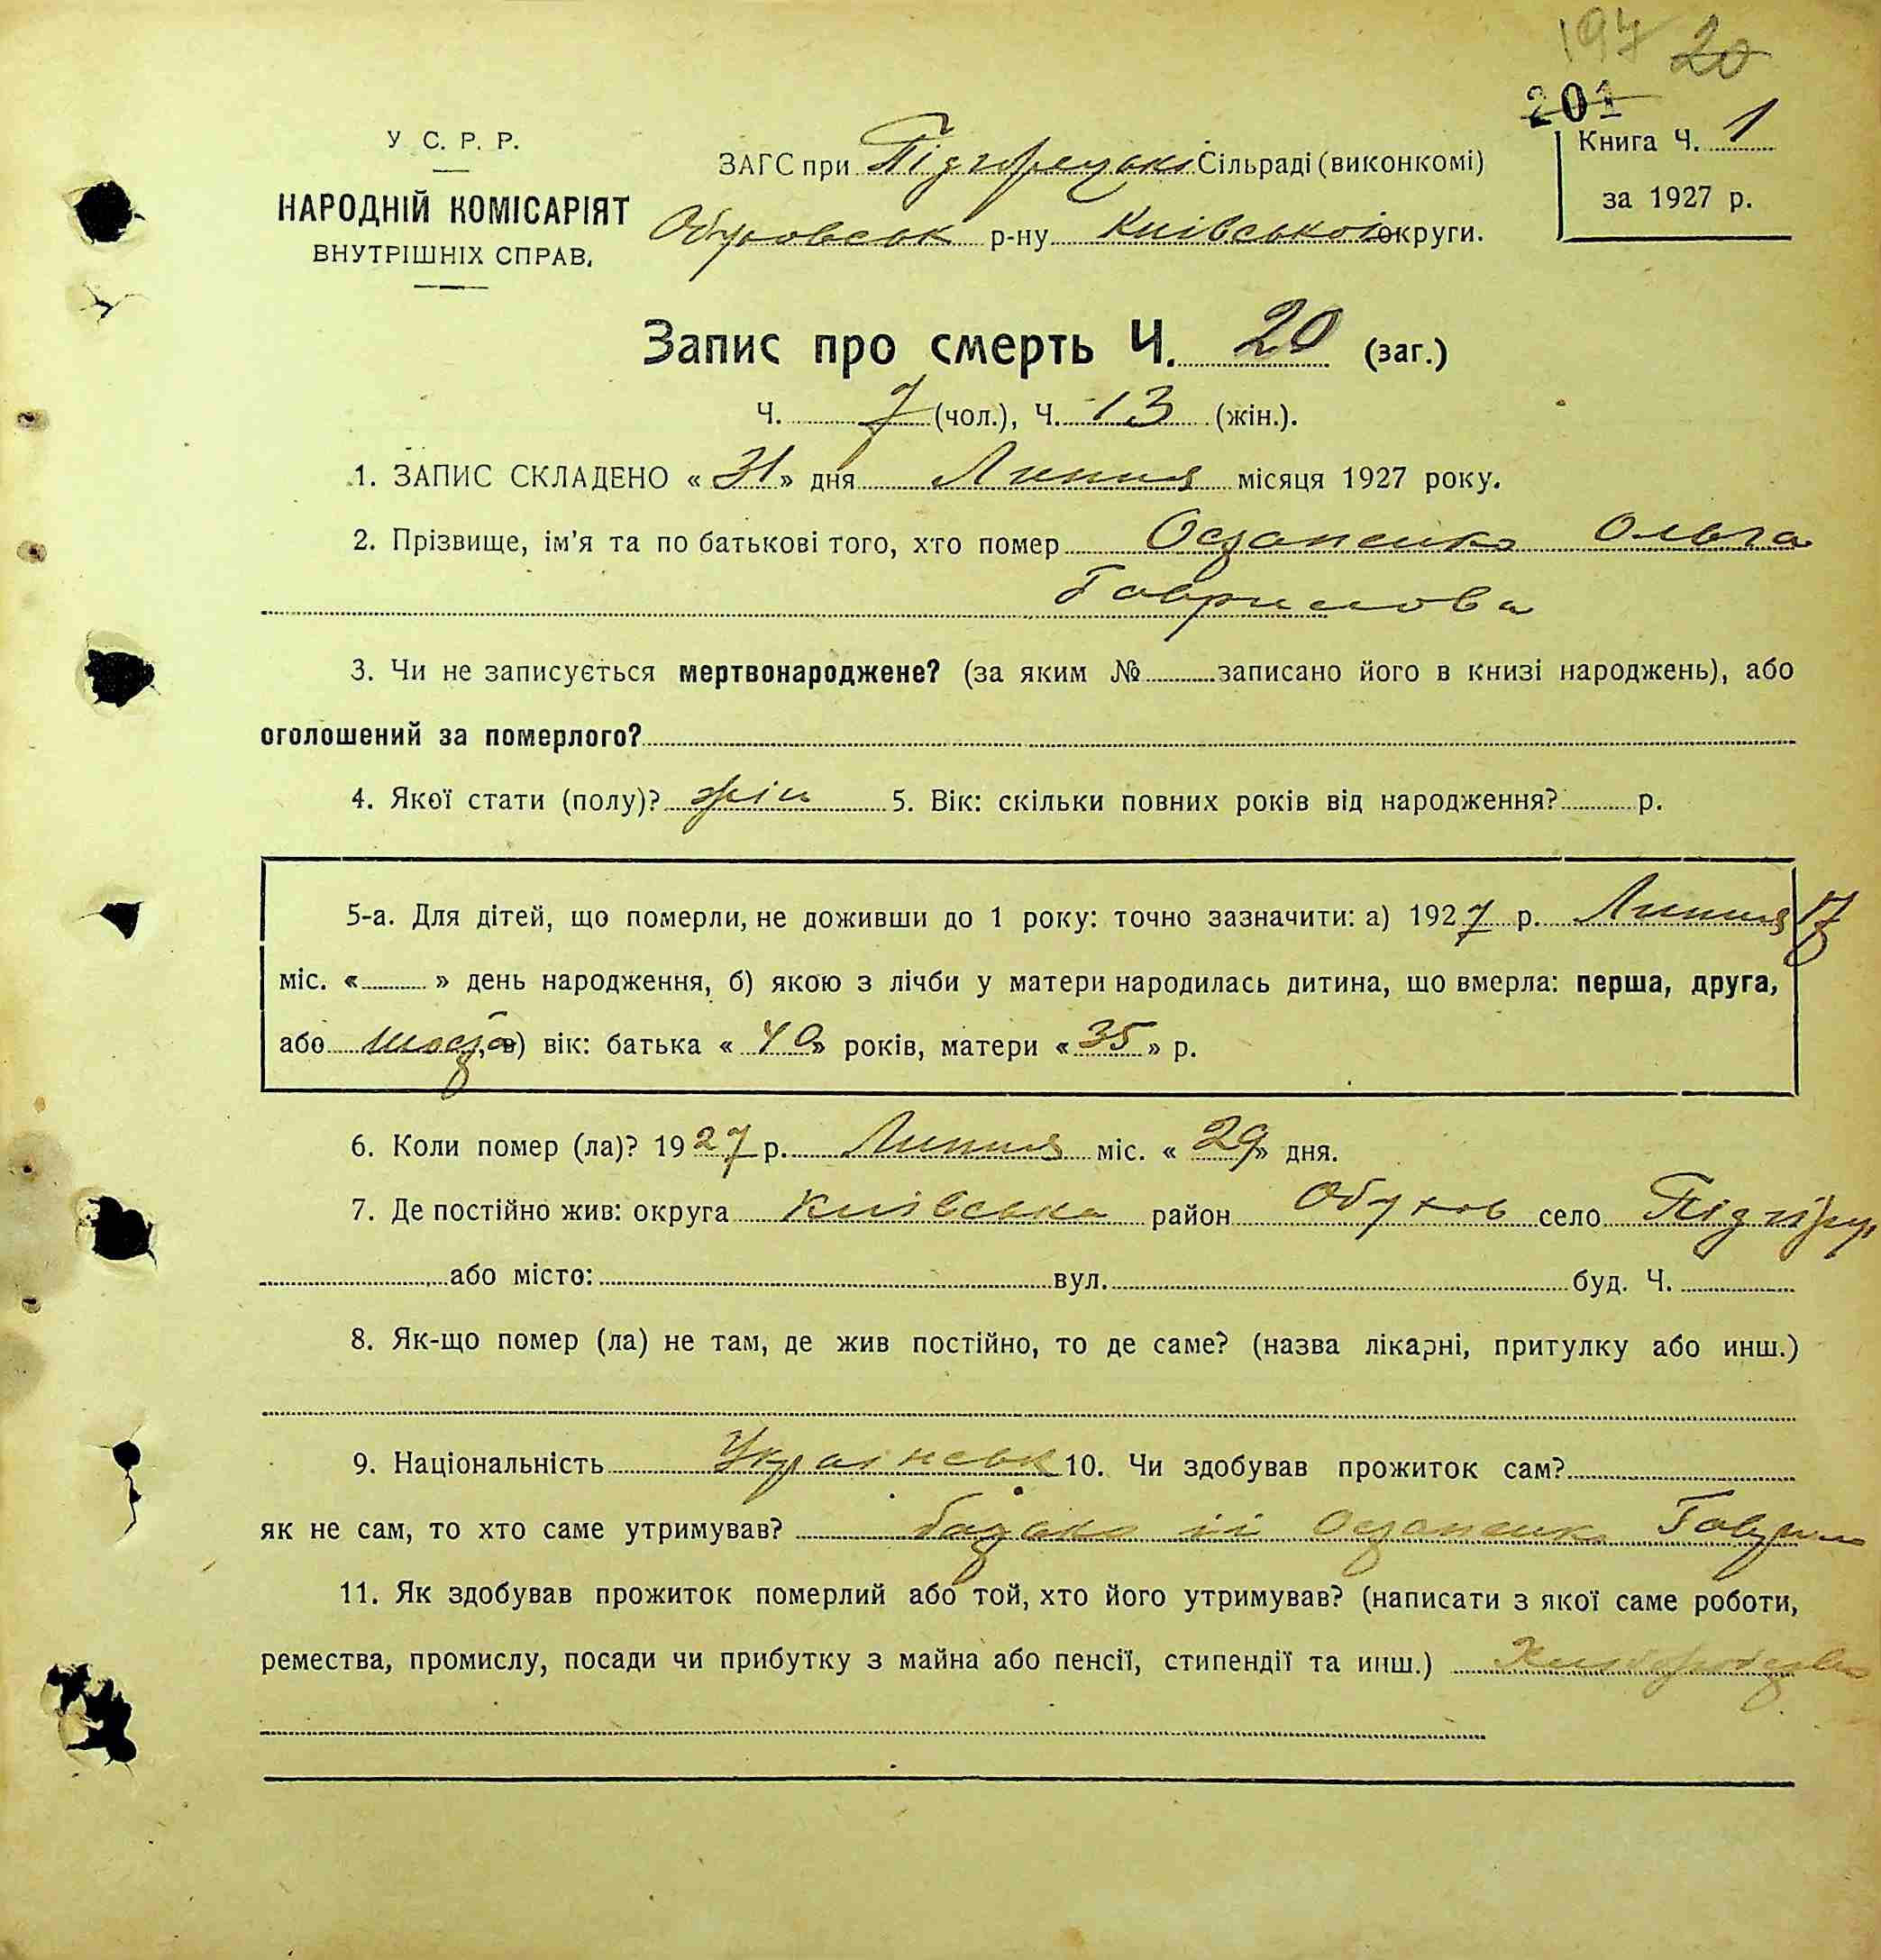 197 20
201
У С. Р. Р.
НАРОДНІЙ КОМІСАРІЯТ
ВНУТРІШНІХ СПРАВ.
ЗАГС при Підгорецькі Сільраді (виконкомі)
р-ну Київської округи.
Книга Ч. 1
за 1927 р.
Запис про смерть Ч. 20 (заг.)
Ч. 7 (чол.), Ч. 13 (жін.).
1. ЗАПИС СКЛАДЕНО « 31 » дня Липня місяця 1927 року.
2. Прізвище, ім'я та по батькові того, хто помер Остапенко Ольга
Гаврилова
3. Чи не записується мертвонароджене? (за яким № записано його в книзі народжень), або
оголошений за померлого?
4. Якої стати (полу)? жін 5. Вік: скільки повних років від народження? р.
5-а. Для дітей, що померли, не доживши до 1 року: точно зазначити: а) 1927 р. Липня 17
міс. « » день народження, б) якою з лічби у матери народилась дитина, що вмерла: перша, друга,
або шоста, в) вік: батька « 40 » років, матери « 35 » р.
6. Коли помер (ла)? 1927 р. Липня міс. « 29 » дня.
7. Де постійно жив: округа Київська район Обухов село Підгірці
або місто: вул. буд. Ч.
8. Як-що помер (ла) не там, де жив постійно, то де саме? (назва лікарні, притулку або инш.)
9. Національність Українськ 10. Чи здобував прожиток сам?
як не сам, то хто саме утримував? батько її Остапенко Гаврило
11. Як здобував прожиток померлий або той, хто його утримував? (написати з якої саме роботи,
ремества, промислу, посади чи прибутку з майна або пенсії, стипендії та инш.)